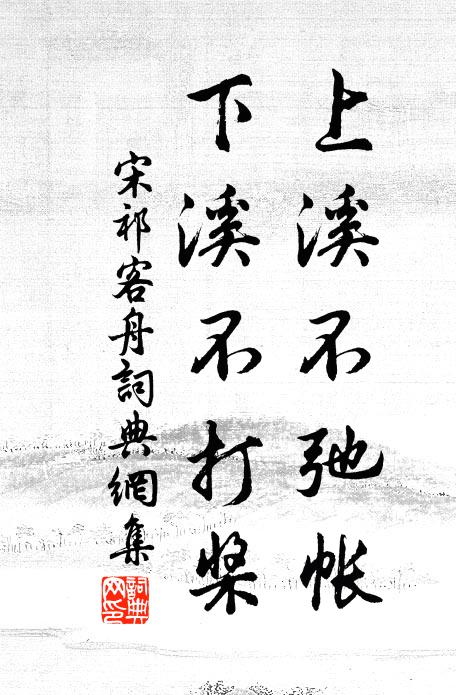 上溪不弛帐
下溪不打槳
宋祁客舟詞典網集
詞典网印